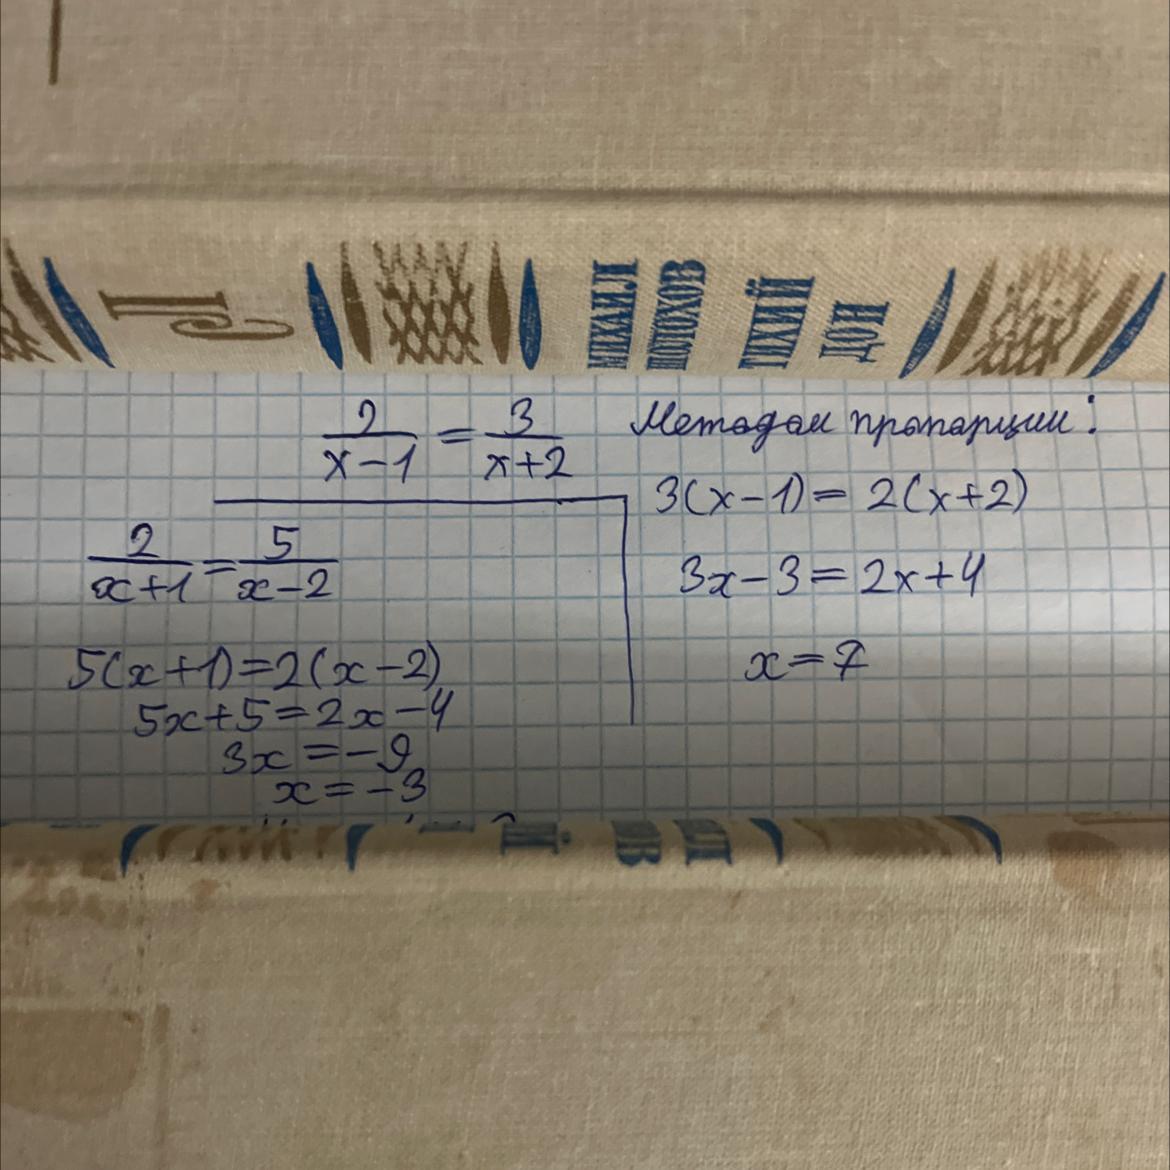 Г
МИХАИЛ
ШОЛОХОВ
ТИХИЙ
ДОН
2/(x-1) = 3/(x+2)
Методом пропорции:
3(x-1) = 2(x+2)
3x-3 = 2x+4
x = 7
2/(x+1) = 5/(x-2)
5(x+1) = 2(x-2)
5x+5 = 2x-4
3x = -9
x = -3